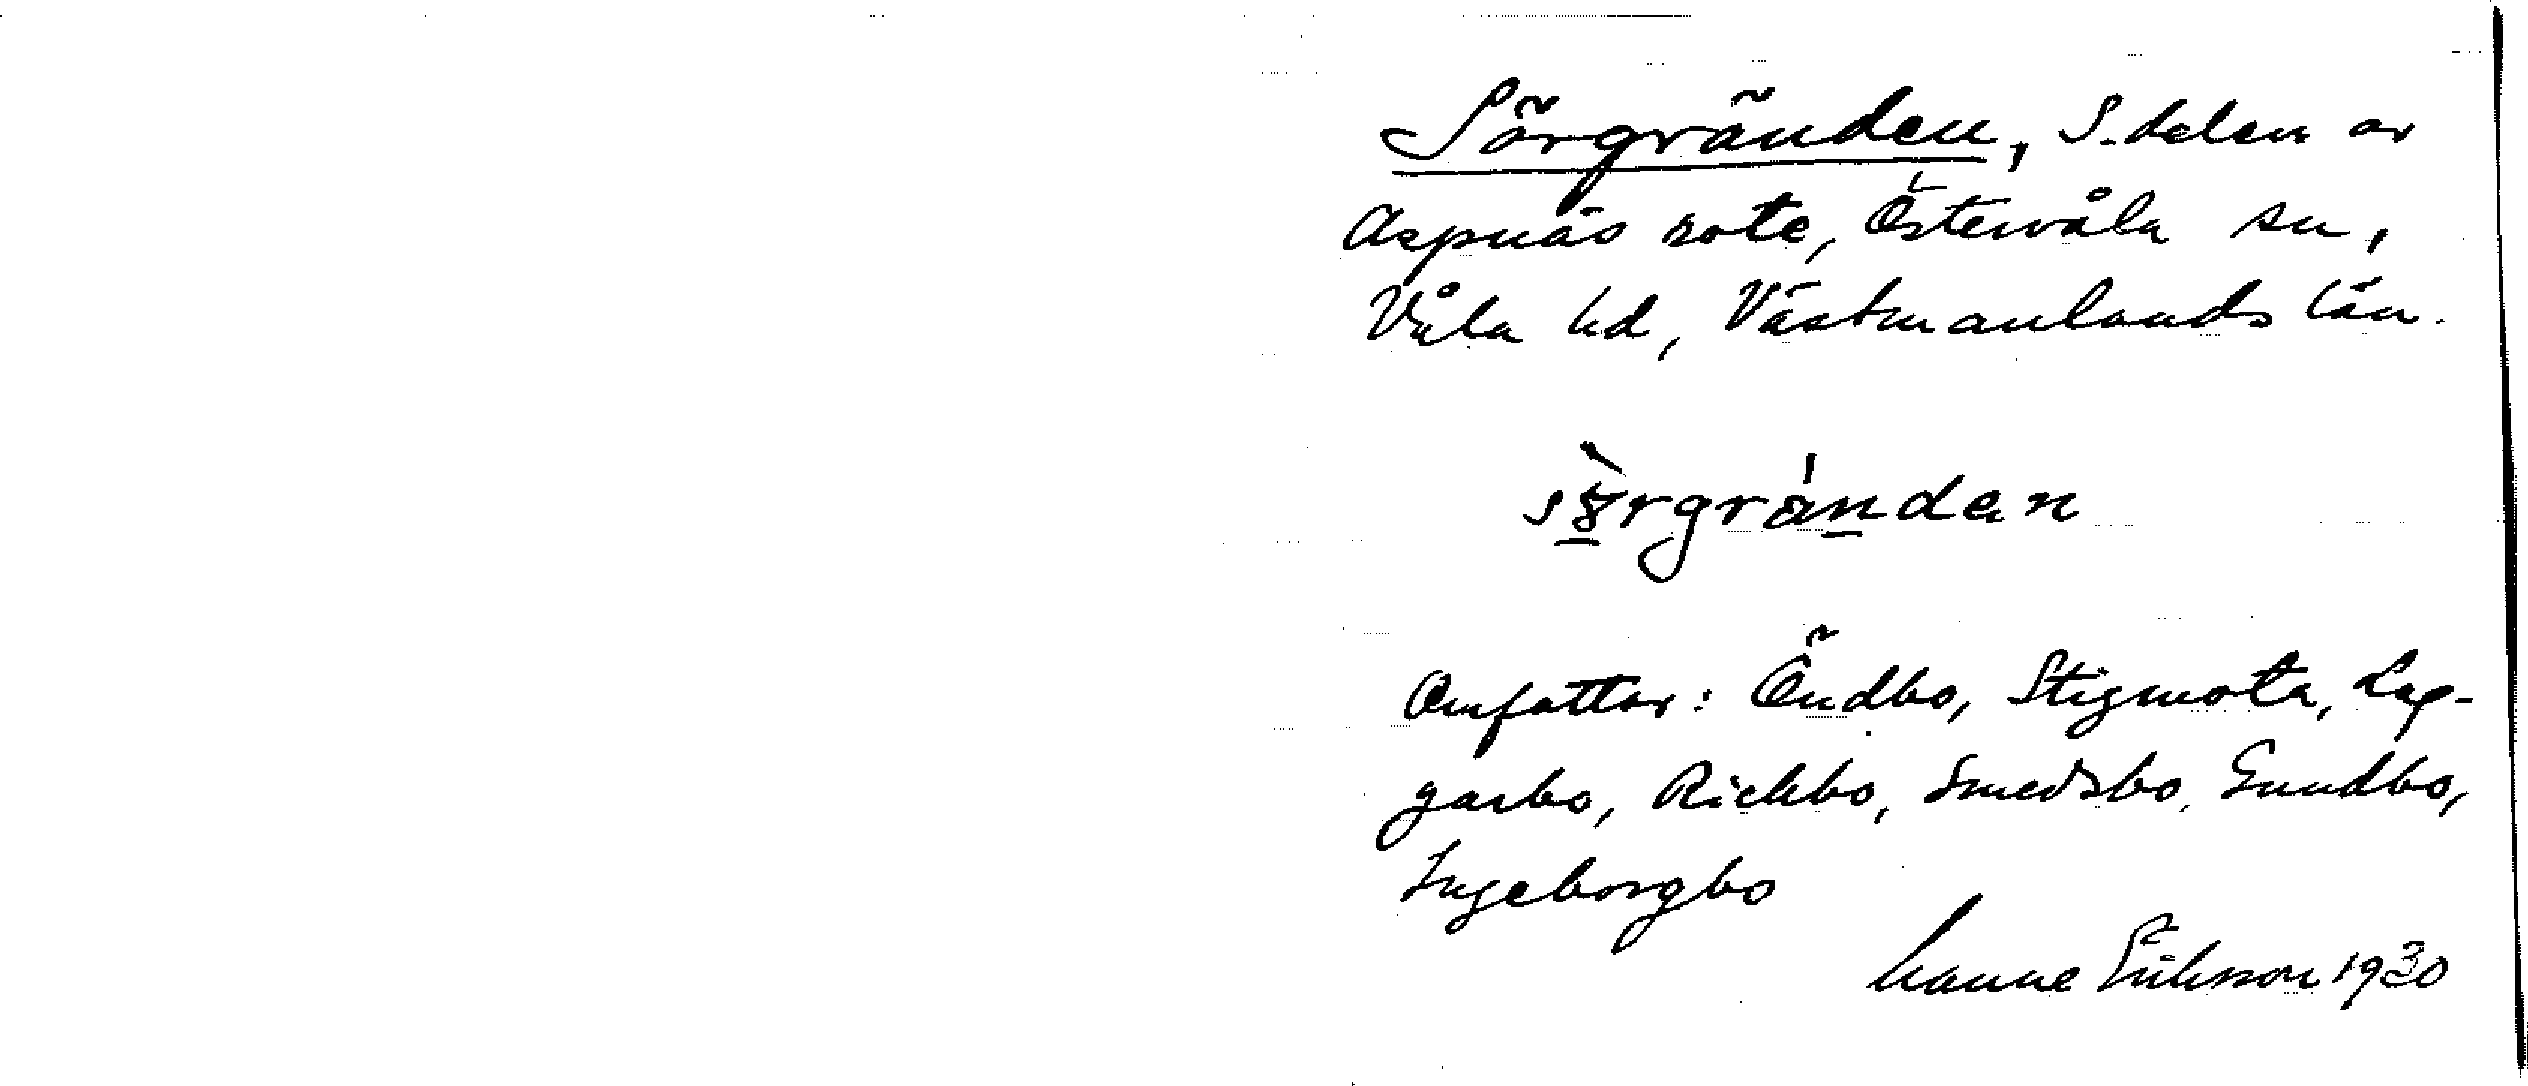 Sörgränden, S. delen av
Aspnäs rote, Östervåla sn,
Våla hd, Västmanlands län.
Omfattar: Öndbo, Stigmota, Lag-
garbo, Rickbo, Smedsbo, Gundbo,
Ingeborgbo
Manne Eriksson 1930